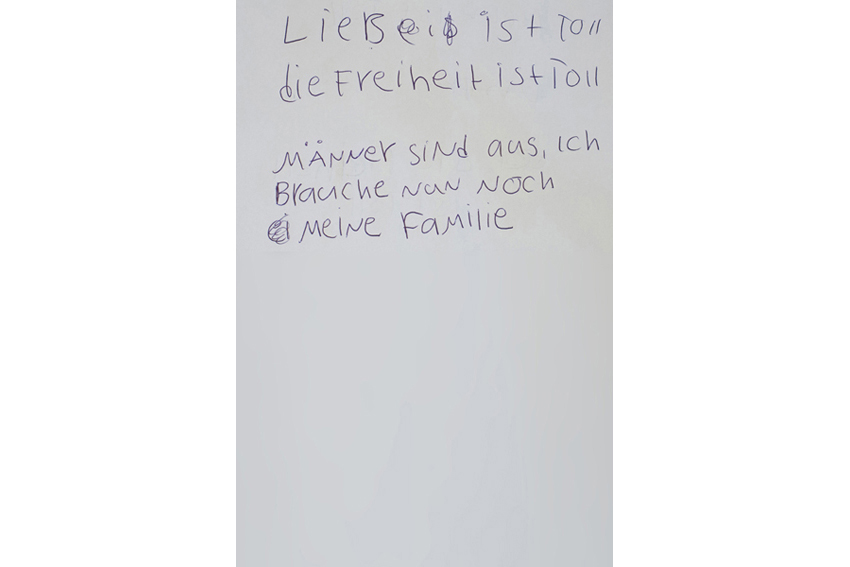 ist Toll
die Freiheit ist Toll
Männer sind aus, ich
Brauche nun noch
meine Familie